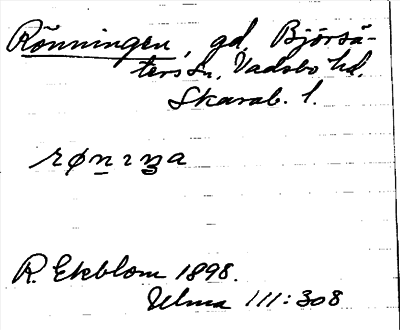 Rönningen, gd, Björsä-
ters sn, Vadsbo hd,
Skarab. l.
rønɪŋa
R. Ekblom 1898.
Ulma 111:308